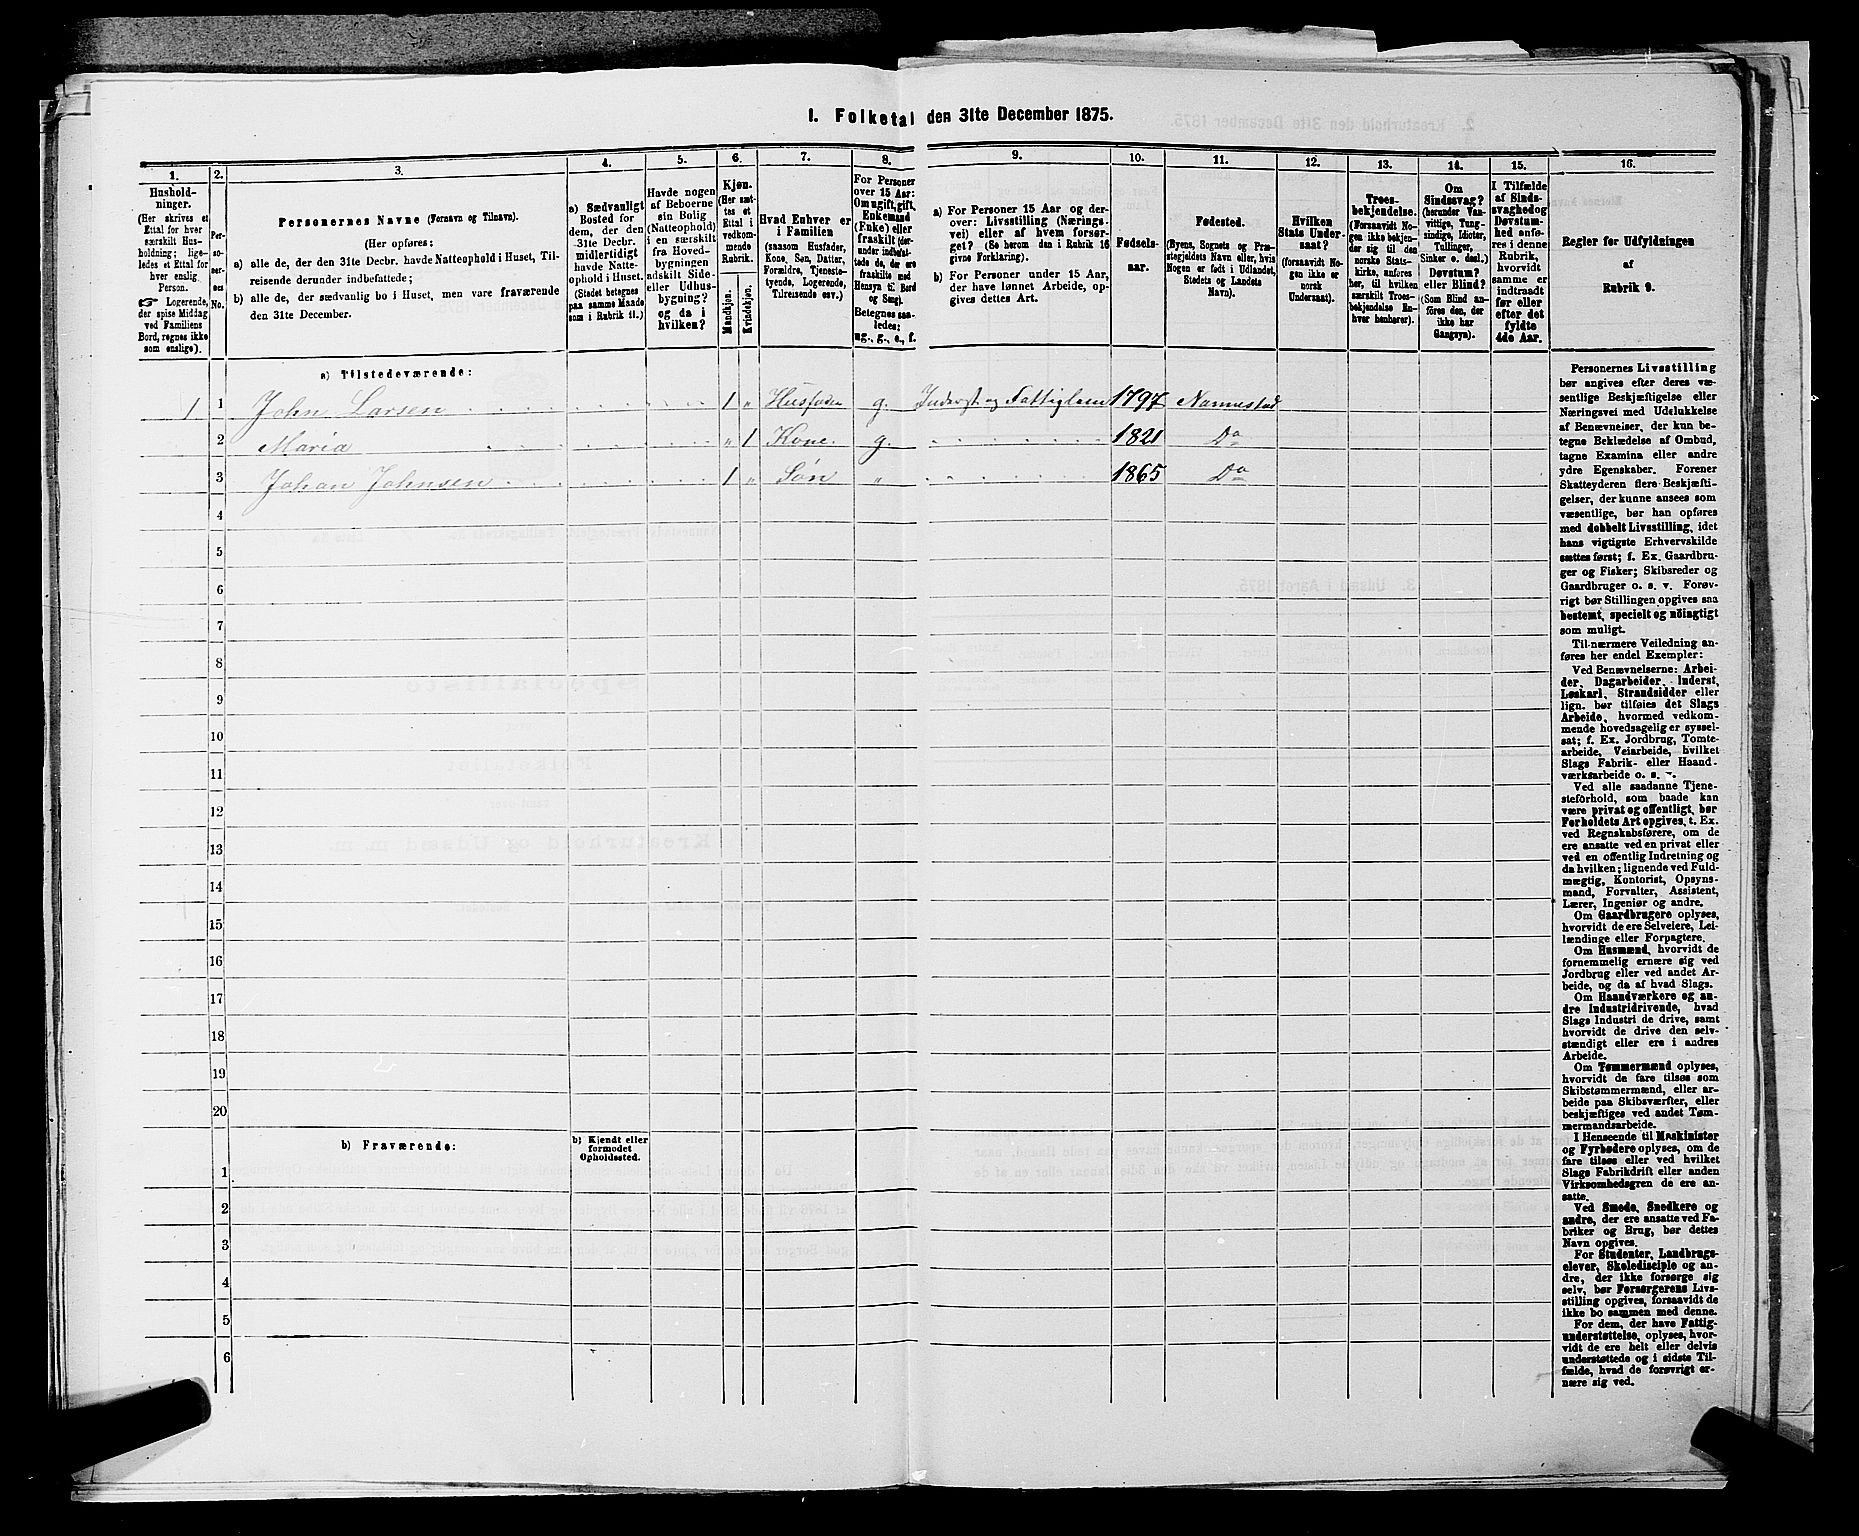 I. Folketal den 31te December 1875.
1.
Hushold-
ninger.
(Her skrives et
Ettal for hver
særskilt Hus-
holdning; lige-
ledes et Ettal for
hver enslig
Person.
☞ Logerende,
der spise Middag
ved Familiens
Bord, regnes ikke
som enslige).
2.
Per-
so-
ner-
nes
No.
3.
Personernes Navne (Fornavn og Tilnavn).
(Her opføres:
a) alle de, der den 31te Decbr. havde Natteophold i Huset, Til-
reisende derunder indbefattede;
b) alle de, der sædvanlig bo i Huset, men vare fraværende
den 31te December.
4.
a) Sædvanligt
Bosted for
dem, der den
31te Decbr.
midlertidigt
havde Natte-
ophold i Huset.
(Stedet betegnes
paa samme Maade
som i Rubrik 11.)
5.
Havde nogen
af Beboerne
sin Bolig
(Natteophold)
i en særskilt
fra Hoved-
bygningen
adskilt Side-
eller Udhus-
bygning?
og da i
hvilken?
6.
Kjøn.
(Her sæt-
tes et
Ettal i
vedkom-
mende
Rubrik.
Mandkjøn.
Kvindekjøn.
7.
Hvad Enhver er
i Familien
(saasom Husfader,
Kone, Søn, Datter,
Forældre, Tjeneste-
tyende, Logerende,
Tilreisende osv.)
8.
For Personer
over 15 Aar:
Om ugift, gift,
Enkemand
(Enke) eller
fraskilt (der-
under indbefat-
tede de, der ere
fraskilte med
Hensyn til Bord
og Seng).
Betegnes saa-
ledes:
ug., g., e., f.
9.
a) For Personer 15 Aar og der-
over: Livsstilling (Nærings-
vei) eller af hvem forsør-
get? (Se herom den i Rubrik 16
givne Forklaring).
b) For Personer under 15 Aar,
der have lønnet Arbeide, op-
gives dettes Art.
10.
Fødsels-
aar.
11.
Fødested.
(Byens, Sognets og Præ-
stegjeldets Navn eller, hvis
Nogen er født i Udlandet,
Stedets og Landets
Navn).
12.
Hvilken
Stats Under-
saat?
(forsaavidt No-
gen ikke er
norsk
Undersaat).
13.
Troes-
bekjendelse.
(Forsaavidt No-
gen ikke bekjen-
der sig til den
norske Stats-
kirke, anføres
her, til hvilken
særskilt Troes-
bekjendelse En-
hver henhører).
14.
Om
Sindssvag?
(herunder Van-
vittige, Tung-
sindige, Idioter,
Tullinger,
Sinker o. desl.)
Døvstum?
eller Blind?
(Som Blind an-
føres den, der
ikke har
Gangsyn).
15.
I Tilfælde
af Sinds-
svaghed og
Døvstum-
hed anfø-
res i denne
Rubrik,
hvorvidt
samme er
indtraadt
før eller
efter det
fyldte
4de Aar.
16.
Regler for Udfyldningen
af
Rubrik 9.
a) Tilstedeværende:
1 1 John Larsen 1 „ Husfader g. Inderst og Fattiglem 1797 Nannestad
2 Maria „ 1 Kone g. 1821 Do
3 Johan Johnsen 1 „ Søn „ 1865 Do
4
5
6
7
8
9
10
11
12
13
14
15
16
17
18
19
20
b) Fraværende:
b) Kjendt eller
formodet
Opholdssted.
1
2
3
4
5
6
Personernes Livsstilling
bør angives efter deres væ-
sentlige Beskjæftigelse eller
Næringsvei med Udelukkelse
af Benævnelser, der kun be-
tegne Beklædelse af Ombud,
tagne Examina eller andre
ydre Egenskaber. Forener
Skatteyderen flere Beskjæfti-
gelser, der kunne ansees som
væsentlige, bør han opføres
med dobbelt Livsstilling, idet
hans vigtigste Erhvervskilde
sættes først; f. Ex. Gaardbru-
ger og Fisker; Skibsreder og
Gaardbruger o. s. v. Forøv-
rigt bør Stillingen opgives saa
bestemt, specielt og nöiagtigt
som muligt.
Til nærmere Veiledning an-
føres her endel Exempler:
Ved Benævnelserne: Arbei-
der, Dagarbeider, Inderst,
Løskarl, Strandsidder eller
lign. bør tilføies det Slags
Arbeide, hvormed vedkom-
mende hovedsagelig er syssel-
sat; f. Ex. Jordbrug, Tomte-
arbeide, Veiarbeide, hvilket
Slags Fabrik- eller Haand-
værksarbeide o. s. v.
Ved alle saadanne Tjene-
steforhold, som baade kan
være privat og offentligt, bør
Forholdets Art opgives, t. Ex.
ved Regnskabsførere, om de
ere ansatte ved en privat eller
ved en offentlig Indretning og
da hvilken; lignende ved Fuld-
mægtig, Kontorist, Opsyns-
mand, Forvalter, Assistent,
Lærer, Ingeniør og andre.
Om Gaardbrugere oplyses,
hvorvidt de ere Selveiere, Lei-
lændinge eller Forpagtere.
Om Husmænd, hvorvidt de
fornemmelig ernære sig ved
Jordbrug eller ved andet Ar-
beide, og da af hvad Slags.
Om Haandværkere og an-
dre Industridrivende, hvad
Slags Industri de drive, samt
hvorvidt de drive den selv-
stændigt eller ere i andres
Arbeide.
Om Tømmermænd oplyses,
hvorvidt de fare tilsøs som
Skibstømmermænd, eller ar-
beide paa Skibsværfter, eller
beskjæftiges ved andet Tøm-
mermandsarbeide.
I Henseende til Maskinister
og Fyrbødere oplyses, om de
fare tilsøs eller ved hvilket
Slags Fabrikdrift eller anden
Virksomhedsgren de ere an-
satte.
Ved Smede, Snedkere og
andre, der ere ansatte ved Fa-
briker og Brug, bør dettes
Navn opgives.
For Studenter, Landbrugs-
elever, Skoledisciple og an-
dre, der ikke forsørge sig
selv, bør Forsørgerens Livs-
stilling opgives, forsaavidt de
ikke bo sammen med denne.
For dem, der have Fattig-
understøttelse, oplyses, hvor-
vidt de ere helt eller delvis
understøttede og i sidste Til-
fælde, hvad de forøvrigt er-
nære sig ved.